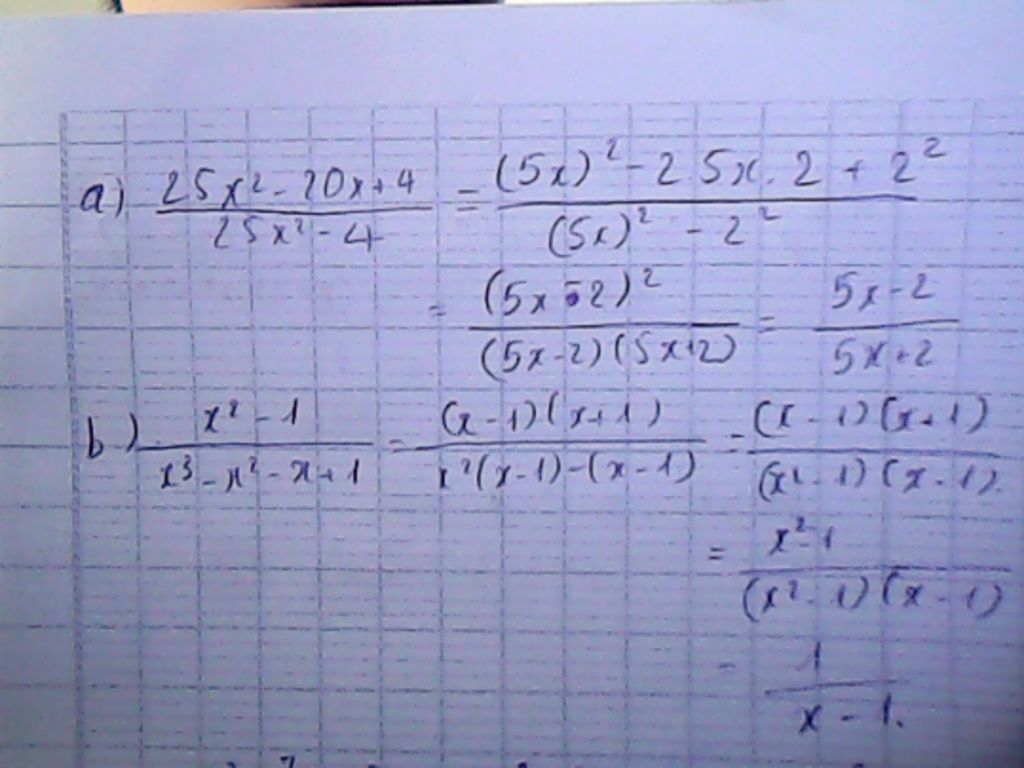 a) (25x² - 20x + 4)/(25x² - 4) = ((5x)² - 2 5x. 2 + 2²)/((5x)² - 2²)
= (5x - 2)²/((5x - 2)(5x + 2)) = (5x - 2)/(5x + 2)
b) (x² - 1)/(x³ - x² - x + 1) = ((x - 1)(x + 1))/(x²(x - 1) - (x - 1)) = ((x - 1)(x + 1))/((x² - 1)(x - 1))
= (x² - 1)/((x² - 1)(x - 1))
= 1/(x - 1).